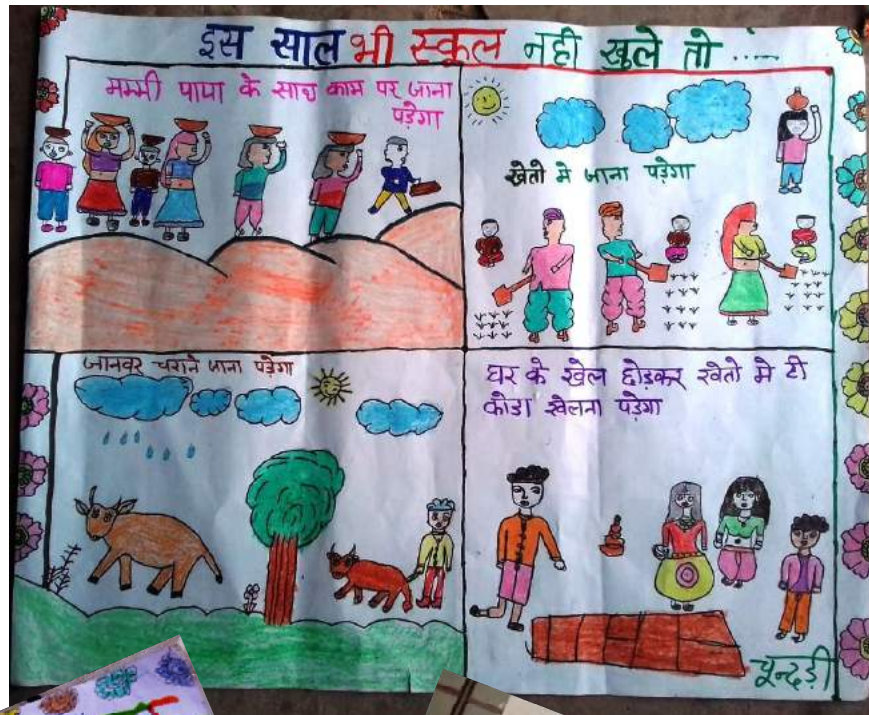 इस साल भी स्कूल नही खुले तो .....
मम्मी पापा के साथ काम पर जाना
पड़ेगा
खेतो मे जाना पड़ेगा
जानवर चराने जाना पड़ेगा
घर के खेल छोड़कर खेतो मे टी
कोडा खेलना पड़ेगा
चून्दड़ी